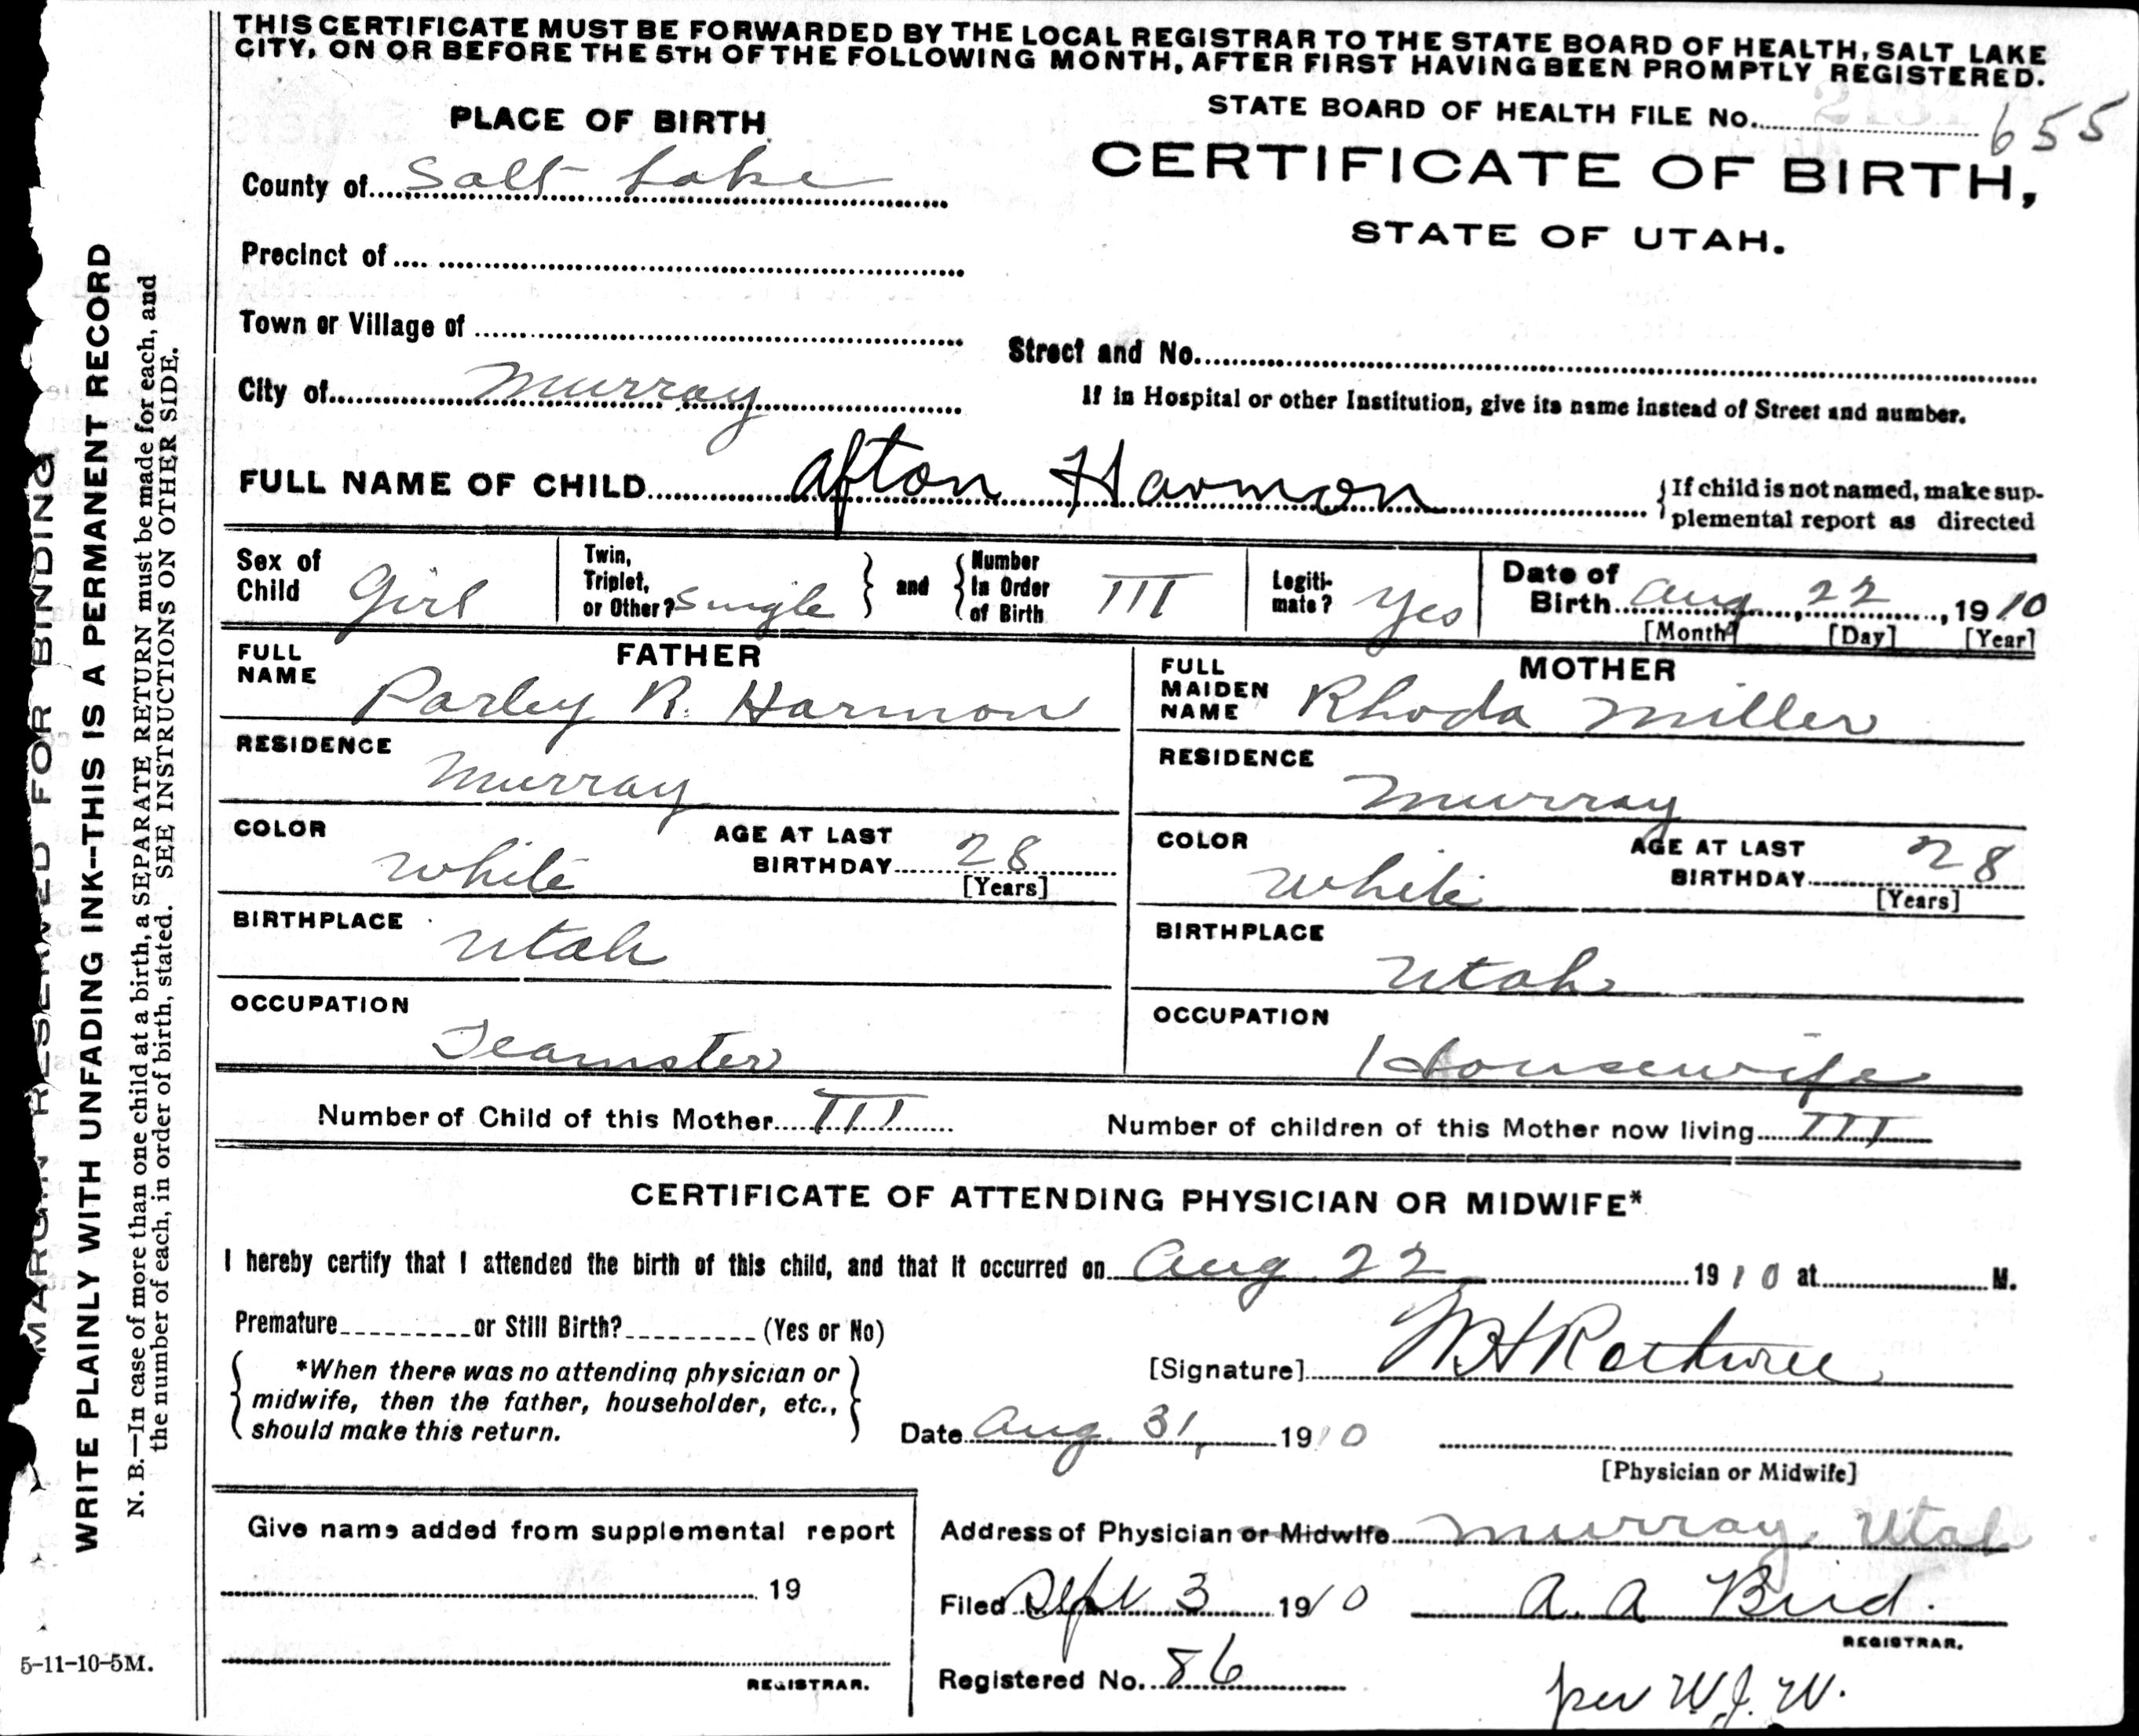 THIS CERTIFICATE MUST BE FORWARDED BY THE LOCAL REGISTRAR TO THE STATE BOARD OF HEALTH, SALT LAKE
CITY, ON OR BEFORE THE 5TH OF THE FOLLOWING MONTH, AFTER FIRST HAVING BEEN PROMPTLY REGISTERED.
STATE BOARD OF HEALTH FILE No. 655
CERTIFICATE OF BIRTH,
STATE OF UTAH.
PLACE OF BIRTH
County of Salt Lake
Precinct of
Town or Village of
Street and No.
City of Murray
If in Hospital or other Institution, give its name instead of Street and number.
FULL NAME OF CHILD Afton Harmon
{If child is not named, make sup-
plemental report as directed
Sex of Child Girl
Twin, Triplet, or Other? Single } and { Number In Order of Birth III
Legiti-mate? Yes
Date of Birth Aug 22, 1910
[Month] [Day] [Year]
FATHER
FULL NAME Parley R. Harmon
RESIDENCE Murray
COLOR White
AGE AT LAST BIRTHDAY 28
[Years]
BIRTHPLACE Utah
OCCUPATION Teamster
MOTHER
FULL MAIDEN NAME Rhoda Miller
RESIDENCE Murray
COLOR White
AGE AT LAST BIRTHDAY 28
[Years]
BIRTHPLACE Utah
OCCUPATION Housewife
Number of Child of this Mother III
Number of children of this Mother now living III
CERTIFICATE OF ATTENDING PHYSICIAN OR MIDWIFE*
I hereby certify that I attended the birth of this child, and that it occurred on Aug 22 1910 at M.
Premature or Still Birth? (Yes or No)
*When there was no attending physician or
midwife, then the father, householder, etc.,
should make this return.
[Signature] W H Rothwell
Date Aug. 31, 1910
[Physician or Midwife]
Give name added from supplemental report
19
REGISTRAR.
Address of Physician or Midwife Murray, Utah
Filed Sept 3 1910 A. A Bird.
REGISTRAR.
Registered No. 86
per W. J. W.
MARGIN RESERVED FOR BINDING
WRITE PLAINLY WITH UNFADING INK--THIS IS A PERMANENT RECORD
N. B.—In case of more than one child at a birth, a SEPARATE RETURN must be made for each, and
the number of each, in order of birth, stated. SEE INSTRUCTIONS ON OTHER SIDE.
5-11-10-5M.